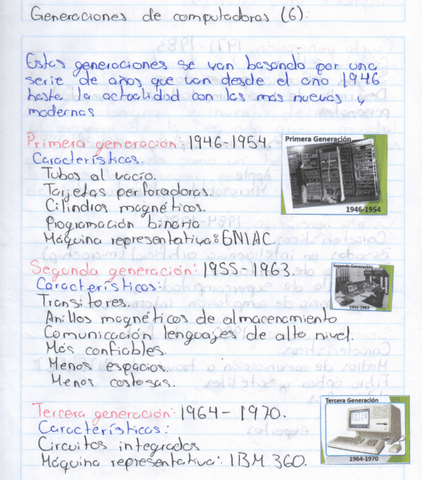 Generaciones de computadoras (6).
Estas generaciones se van basando por una
serie de años que van desde el año 1946
hasta la actualidad con las más nuevas y
modernas
Primera generación: 1946-1954.
Características.
Tubos al vacío.
Tarjetas perforadoras.
Cilindros magnéticos.
Programación binaria
Máquina representativa: ENIAC.
Primera Generación
1946-1954
Segunda generación: 1955-1963.
Características:
Transitores.
Anillos magnéticos de almacenamiento
Comunicación lenguajes de alto nivel.
Más confiables.
Menos espacios.
Menos costosas.
Segunda Generación
1955-1963
Tercera generación: 1964-1970.
Características:
Circuitos integrados
Máquina representativa: IBM 360.
Tercera Generación
1964-1970